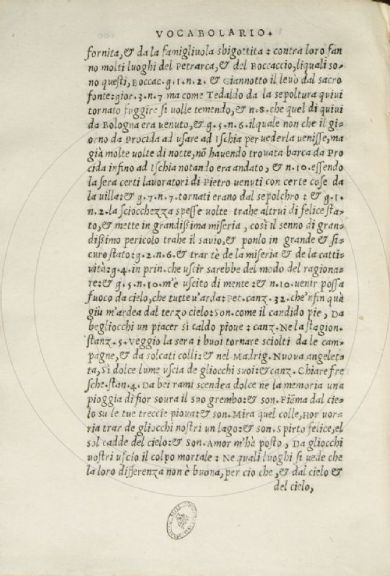 VOCABOLARIO.
fornita, & da la famigliuola sbigottita: contra loro fan
no molti luoghi del Petrarca, & del Boccaccio, liquali so
no questi, Boccac. g. 1. n. 2. & Giannotto il levò dal sacro
fonte: gior. 3. n. 7 ma come Tedaldo da la sepoltura quivi
tornato fuggire si volle temendo, & n. 8. che quel di quivi
da Bologna era venuto, & g. 5. n. 6. il quale non che il gi=
orno da Procida ad usare ad Ischia per vederla venisse, ma
già molte volte di notte, nō havendo trovata barca da Pro
cida infino ad Ischia notando era andato, & n. 10. essendo
la sera certi lavoratori di Pietro venuti con certe cose da
la villa: & g. 7. n. 7. tornati erano dal sepolchro: & g. 1.
n. 2. la sciocchezza spesse volte trahe altrui di felice sta=
to, & mette in grandissima miseria, così il senno di gran=
dissimo pericolo trahe il savio, & ponlo in grande & si=
curo stato: g. 2. n. 6. & trar tè de la miseria & de la catti=
vità: g. 4. in prin. che uscir sarebbe del modo del ragiona=
re: & g. 5. n. 10. m'è uscito di mente: & n. 10. venir possa
fuoco da cielo, che tutte v'arda: Pet. canz. 32. che'nfin quà
giù m'ardea dal terzo cielo: Son. come il candido piè, Da
begliocchi un piacer sì caldo piove: canz. Ne la stagion.
stanz. 5. Veggio la sera i buoi tornare sciolti da le cam=
pagne, & da solcati colli: & nel Madrig. Nuova angelet=
ta, Sì dolce lume uscia de gliocchi suoi: & canz. Chiare fre
sche. stan. 4. Da bei rami scendea dolce ne la memoria una
pioggia di fior soura il suo grembo: & son. Fiāma dal cie=
lo su le tue treccie piova: & son. Mira quel colle, Hor vor=
ria trar de gliocchi nostri un lago: & son. Spirto felice, el
sol cadde del cielo: & son. Amor m'hà posto, Da gliocchi
vostri uscio il colpo mortale: Ne quali luoghi si vede che
la loro differenza non è buona, per cio che, & dal cielo &
del cielo,